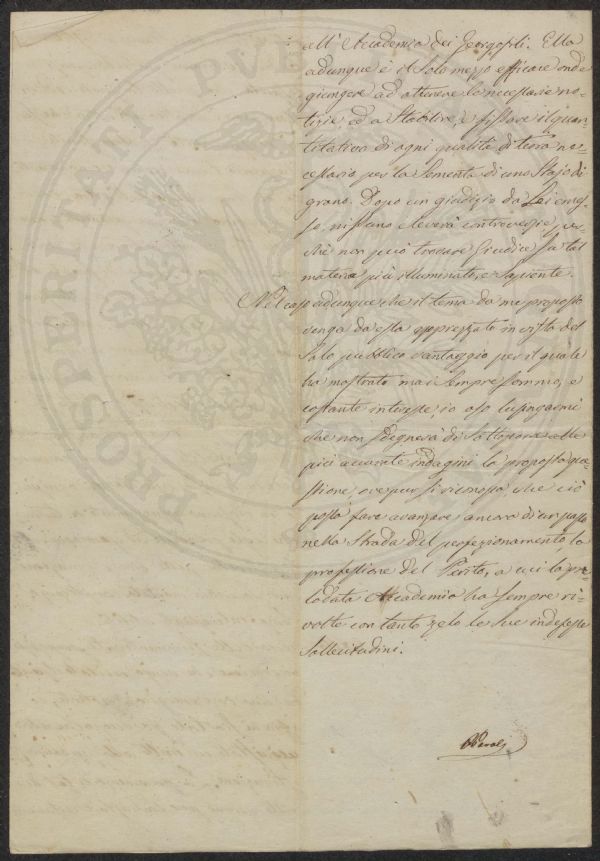 all'Accademia dei Georgofili. Ella
adunque è il solo mezzo efficace onde
giungere ad ottenere le necessarie no-
tizie, ed a stabilire, e fissare il quan-
titativo di ogni qualità di terra ne-
cessario per la sementa di uno Stajo di
grano. Dopo un giudizio da Lei emes-
so, nissuno eleverà controversie, per-
chè non può trovare Giudice in tal
materia più illuminato, e sapiente.
Nel caso adunque che il tema da me proposto
venga da essa apprezzato in vista del
solo pubblico vantaggio per il quale
ha mostrato mai sempre sommo, e
costante interesse, io oso lusingarmi
che non sdegnerà di sottoporre alle
più accurate indagini la proposta que-
stione, ove pur si riconosca, che ciò
possa fare avanzare ancora di un passo
nella strada del perfezionamento la
professione del Perito, a cui la pre-
lodata Accademia ha sempre ri-
volte con tanto zelo le sue indefesse
sollecitudini.
PROSPERITATI
PVB